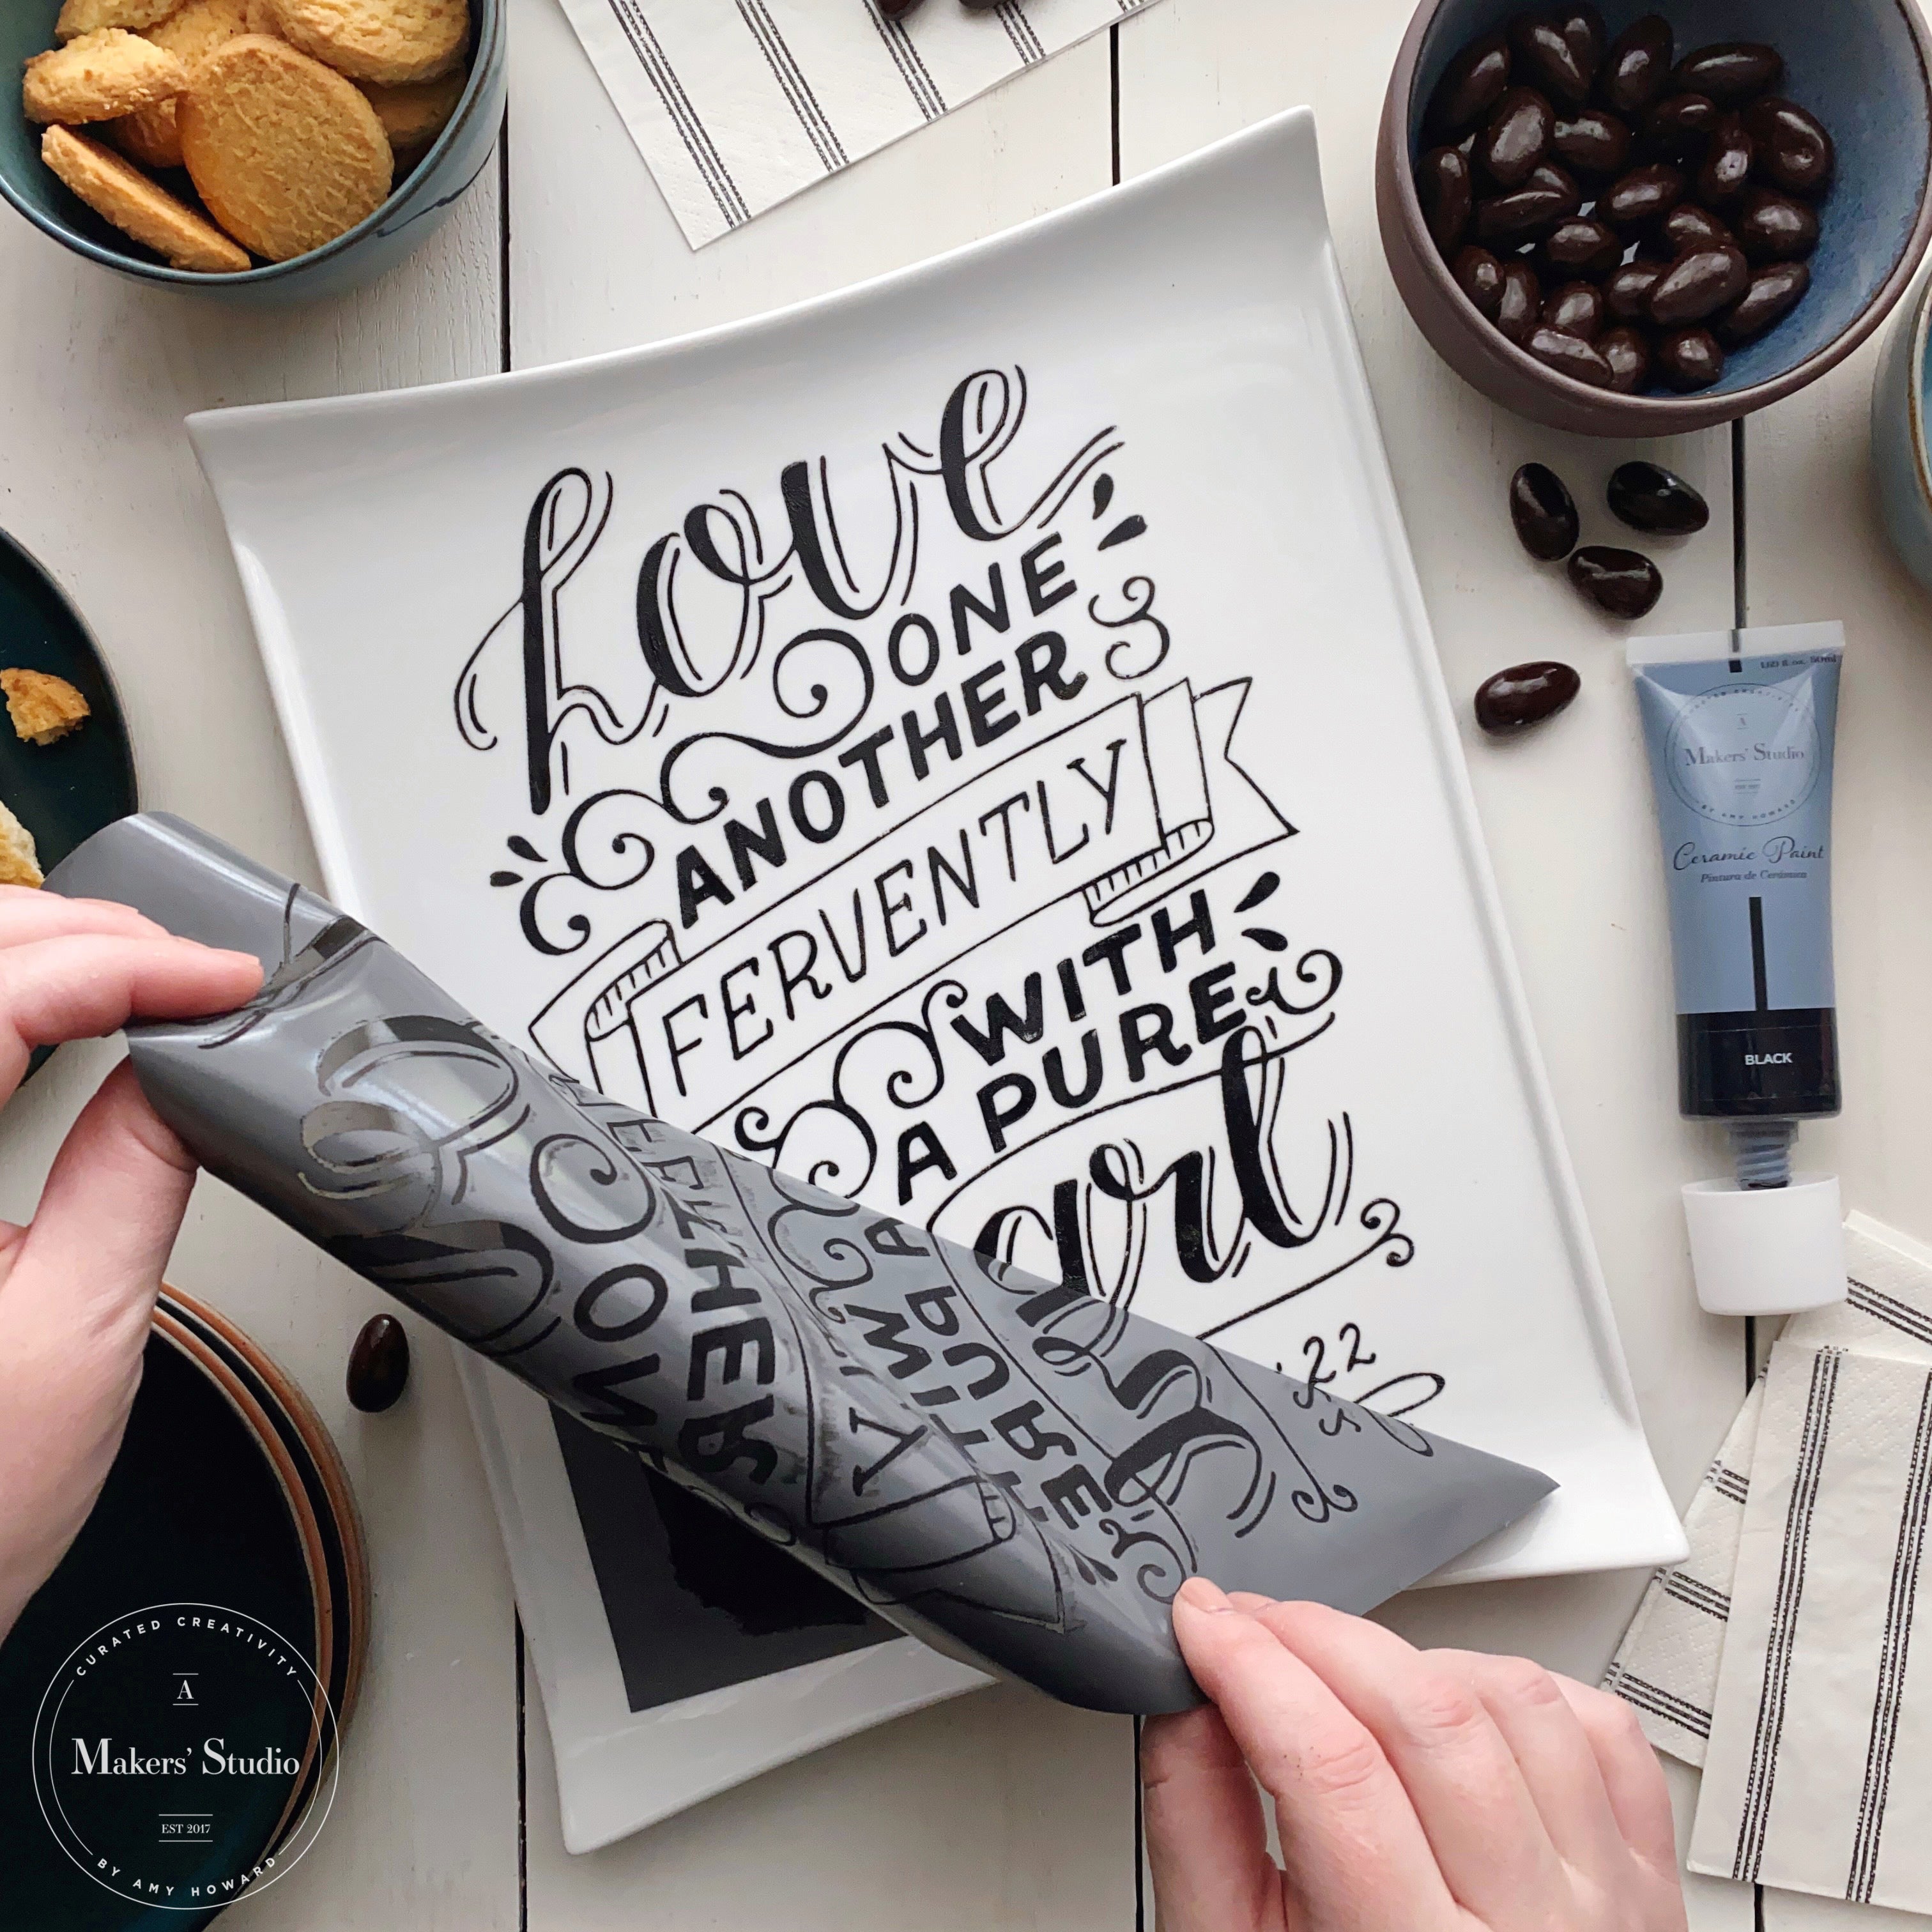 Love
ONE
ANOTHER
FERVENTLY
WITH
A PURE
:22
1.69 fl. oz. 50ml
A
Makers' Studio
BY AMY HOWARD
Ceramic Paint
Pintura de Cerámica
BLACK
CURATED CREATIVITY
A
Makers' Studio
EST 2017
BY AMY HOWARD